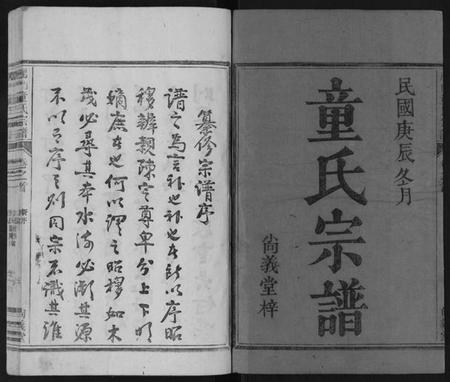 民國庚辰冬月
童氏宗譜
尙義堂梓
纂修宗譜序
譜之為言补也补也者所以序昭
穆辨親疎定尊卑分上下明
嫡庶者也何以謂之昭穆如木
茂必尋其本水流必溯其源
不以之序之則同宗不識其誰